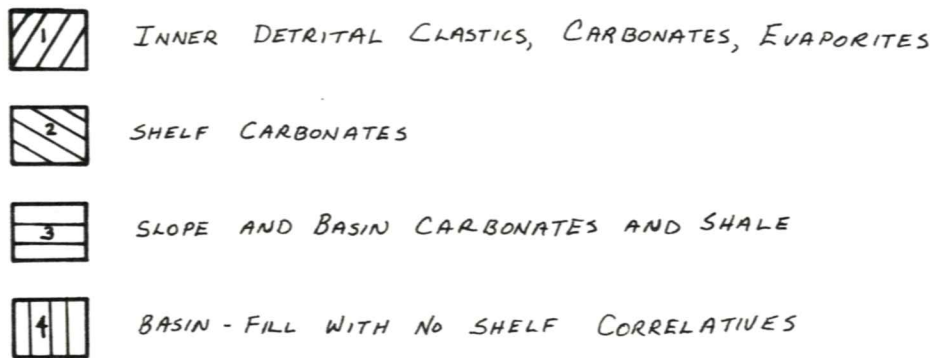 1 INNER DETRITAL CLASTICS, CARBONATES, EVAPORITES
2 SHELF CARBONATES
3 SLOPE AND BASIN CARBONATES AND SHALE
4 BASIN - FILL WITH NO SHELF CORRELATIVES